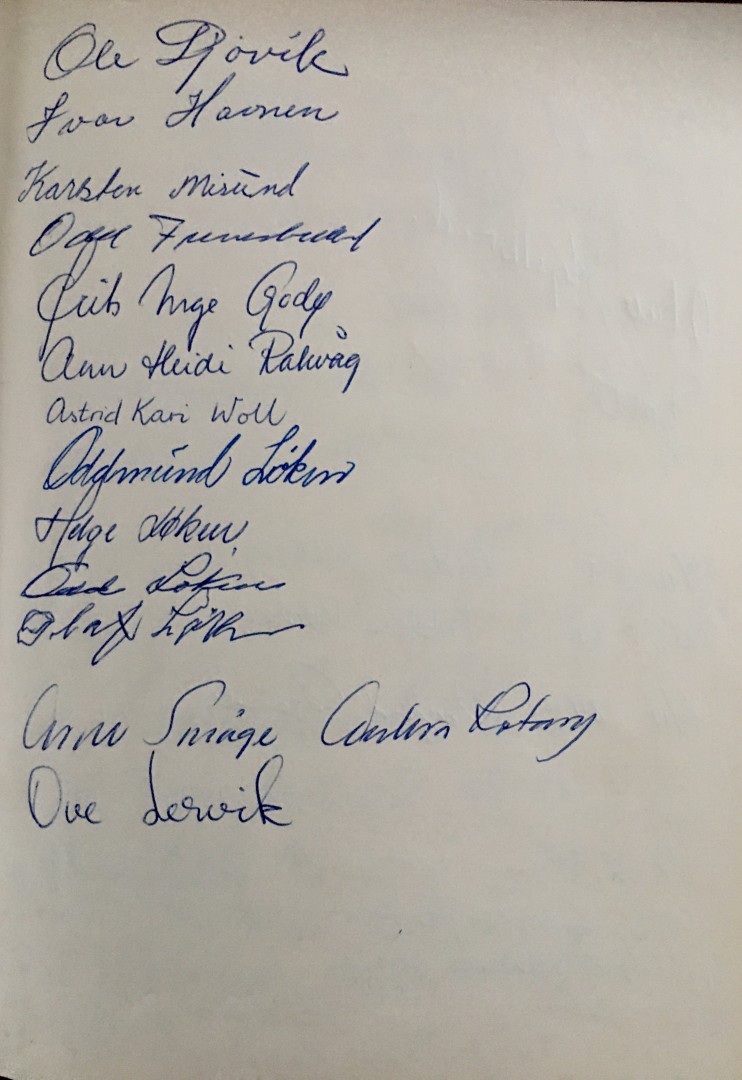 Ole Gjøvik
Ivar Havnen
Karsten Misund
Odd
Inge Godø
Ann Heidi Ralvåg
Astrid Kari Woll
Oddmund Løken
Helge Løken
Odd Løken
Olaf Løken
Arne Småge Anders
Ove Lervik